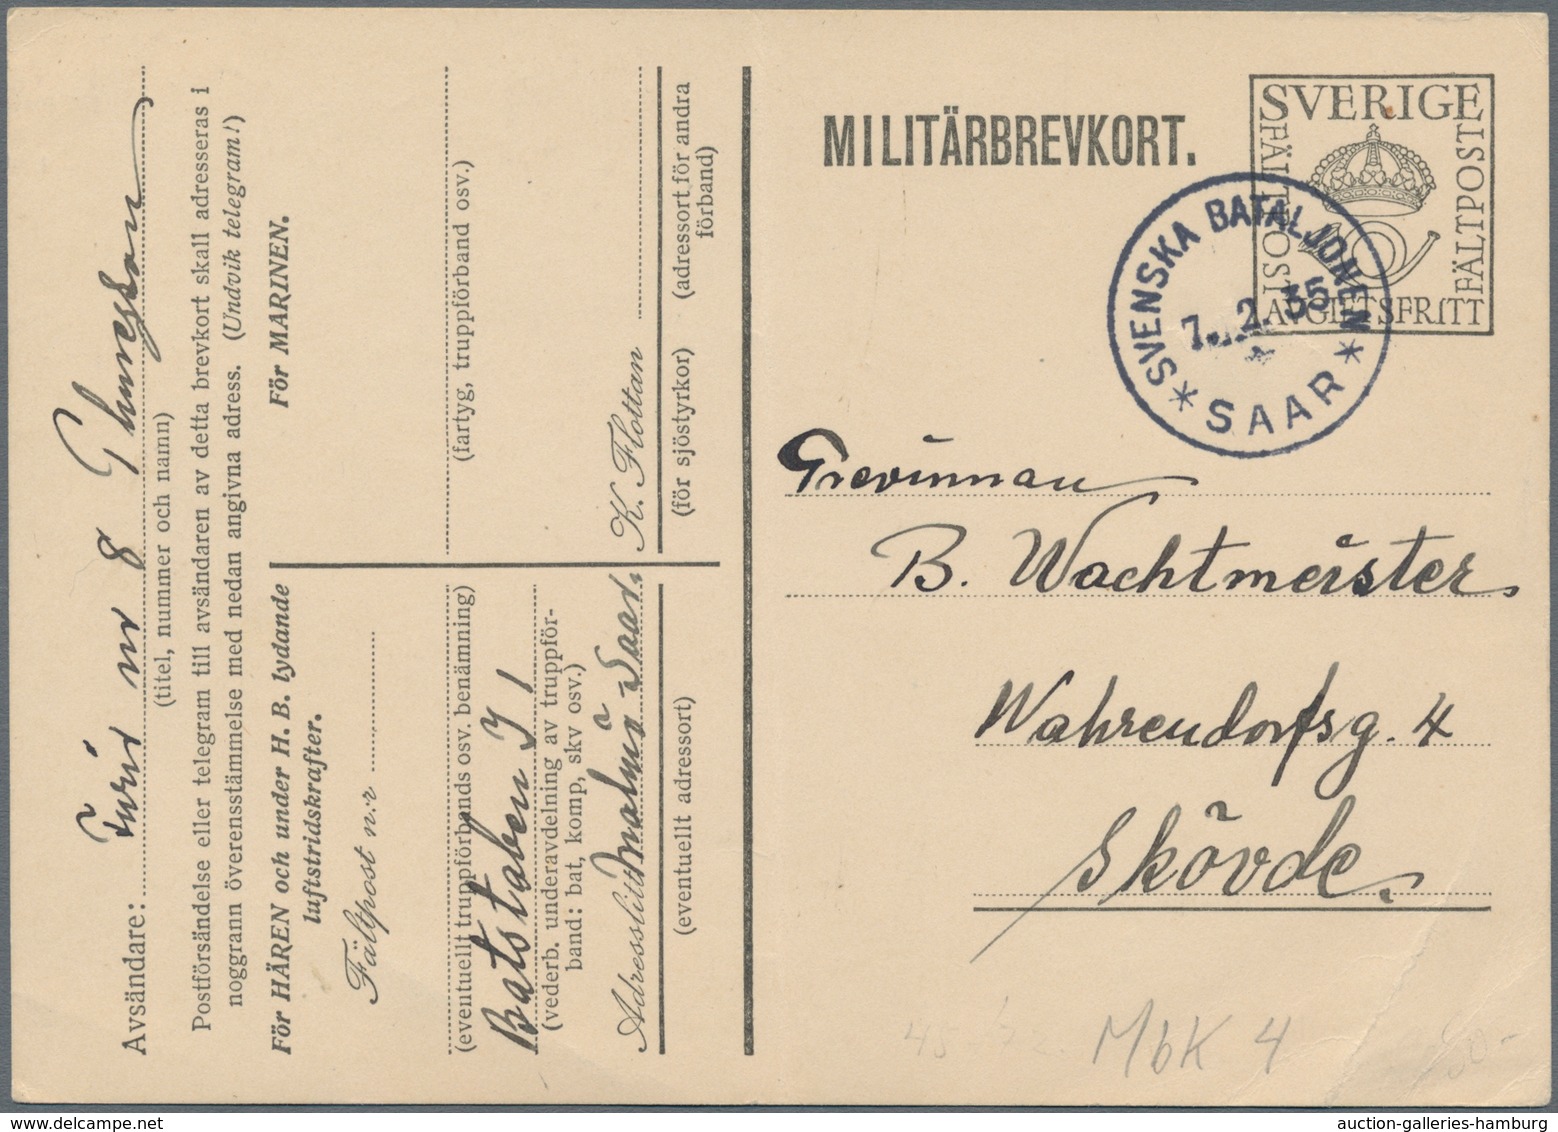 Avsändare: Furir nr 8 Thuresson
(titel, nummer och namn)
Postförsändelse eller telegram till avsändaren av detta brevkort skall adresseras i
noggrann överensstämmelse med nedan angivna adress. (Undvik telegram!)
För HÄREN och under H. B. lydande
luftstridskrafter.
Fältpost n:r
(eventuellt truppförbands osv. benämning)
Batstaben I 1
(vederb. underavdelning av truppför-
band: bat, komp, skv osv.)
Adresslitt Malmö Saar.
(eventuellt adressort)
För MARINEN.
(fartyg, truppförband osv.)
K. Flottan
(för sjöstyrkor) (adressort för andra
förband)
MILITÄRBREVKORT.
SVERIGE
FÄLTPOST
FÄLTPOST
AVGIFTSFRITT
SVENSKA BATALJONEN
7. 2. 35
* SAAR *
Grevinnan
B. Wachtmeister
Wahrendorfsg. 4
Skövde.
MbK 4
auction-galleries-hamburg